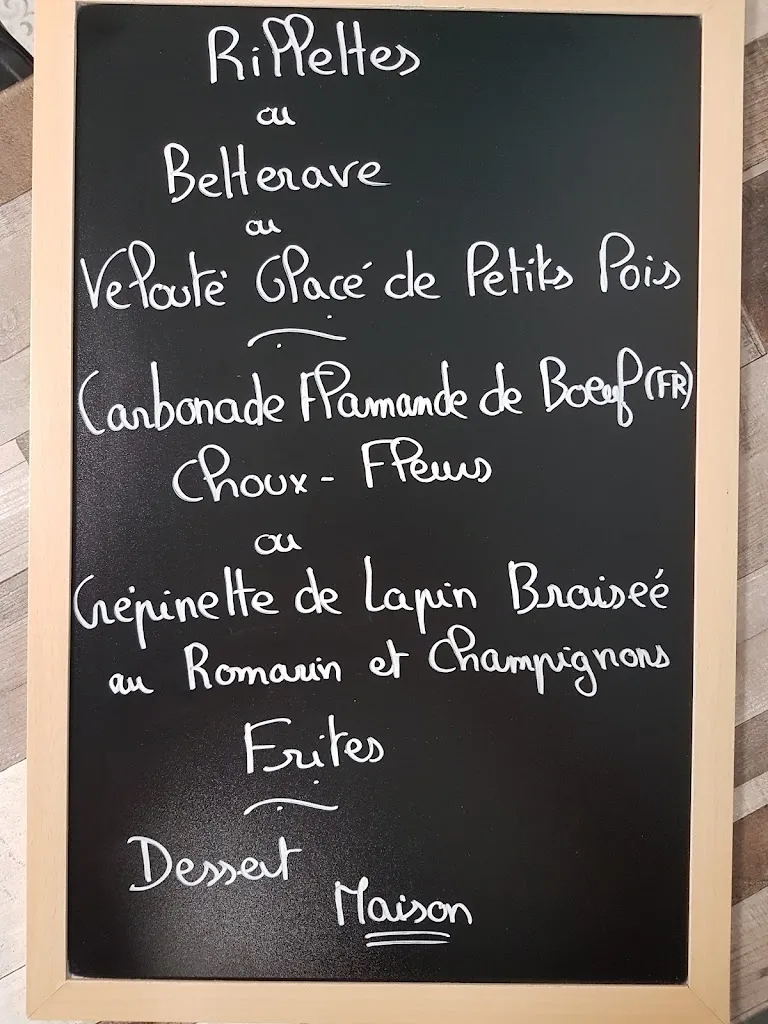 Rillettes
ou
Betterave
ou
Velouté Glacé de Petits Pois
Carbonade Flamande de Boeuf (FR)
Choux - Fleurs
ou
Crépinette de Lapin Braiseé
au Romarin et Champignons
Frites
Dessert
Maison